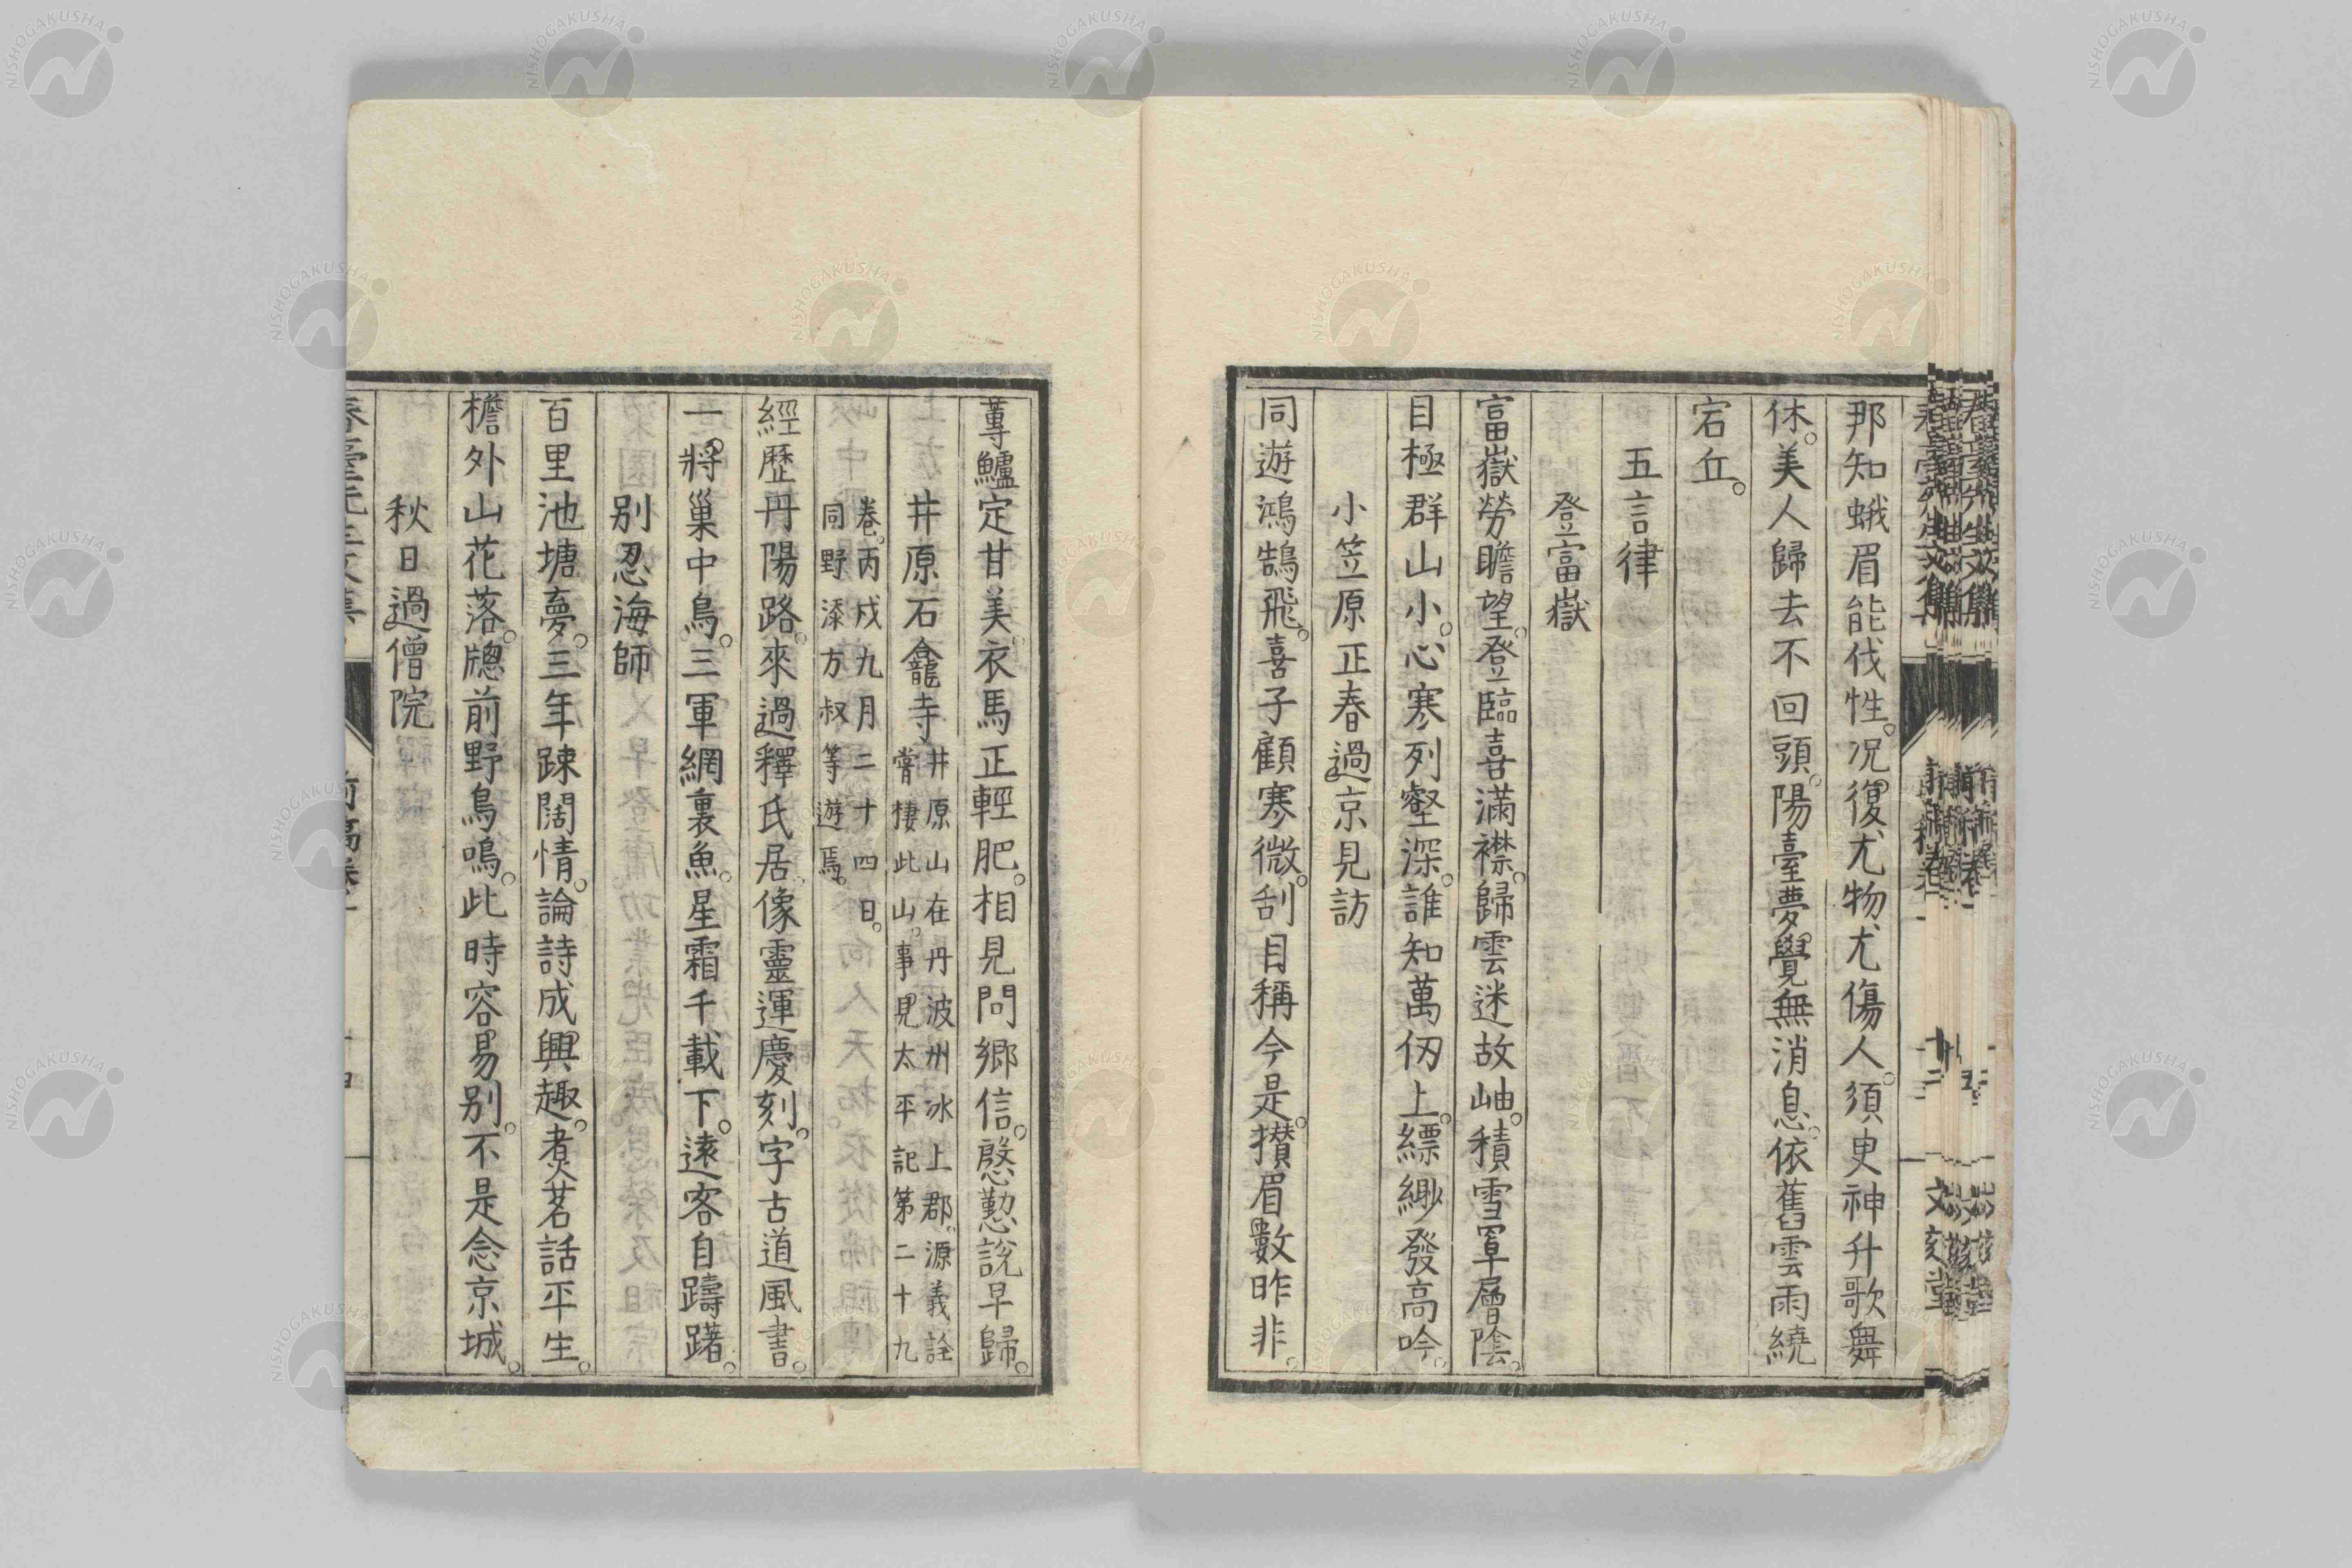 那知蛾眉能伐性。况復尤物尤傷人。須臾神升歌舞
休。美人歸去不回頭。陽臺夢覺無消息。依舊雲雨繞
宕丘。
五言律
登富嶽
富嶽勞瞻望。登臨喜滿襟。歸雲迷故岫。積雪罩層陰。
目極群山小。心寒列壑深。誰知萬仭上。縹緲發高吟。
小笠原正春過京見訪
同遊鴻鵠飛。喜子顧寒微。刮目稱今是。攅眉數昨非。
蓴鱸定甘美。衣馬正輕肥。相見問鄉信。慇懃說早歸。
井原石龕寺
井原山在丹波州冰上郡。源義詮
嘗棲此山。事見太平記第二十九
卷。丙戌九月二十四日。
同野漆方叔等遊焉。
經歷丹陽路。來過釋氏居。像靈運慶刻。字古道風書。
一將巢中鳥。三軍網裏魚。星霜千載下。遠客自躊躇。
別忍海師
百里池塘夢。三年踈闊情。論詩成興趣。煑茗話平生。
檐外山花落。牕前野鳥鳴。此時容易別。不是念京城。
秋日過僧院
NISHOGAKUSHA